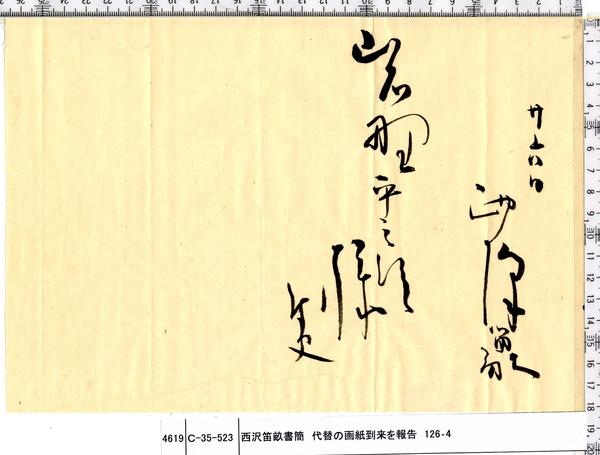 廿六日
西澤笛畝
岩野平三郎
様
侍史
4619 C-35-523 西沢笛畝書簡 代替の画紙到来を報告 126-4